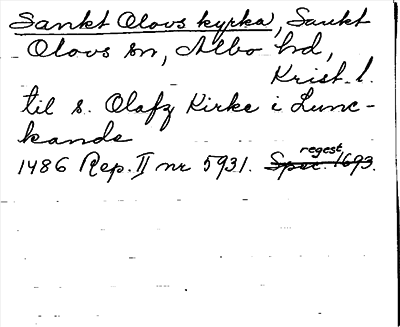 Sankt Olovs kyrka, Sankt
Olovs sn, Albo hd,
Krist. l.
til s. Olafz Kirke i Lunc-
kande
1486 Rep. II nr 5931. Spec. 1693.
regest,